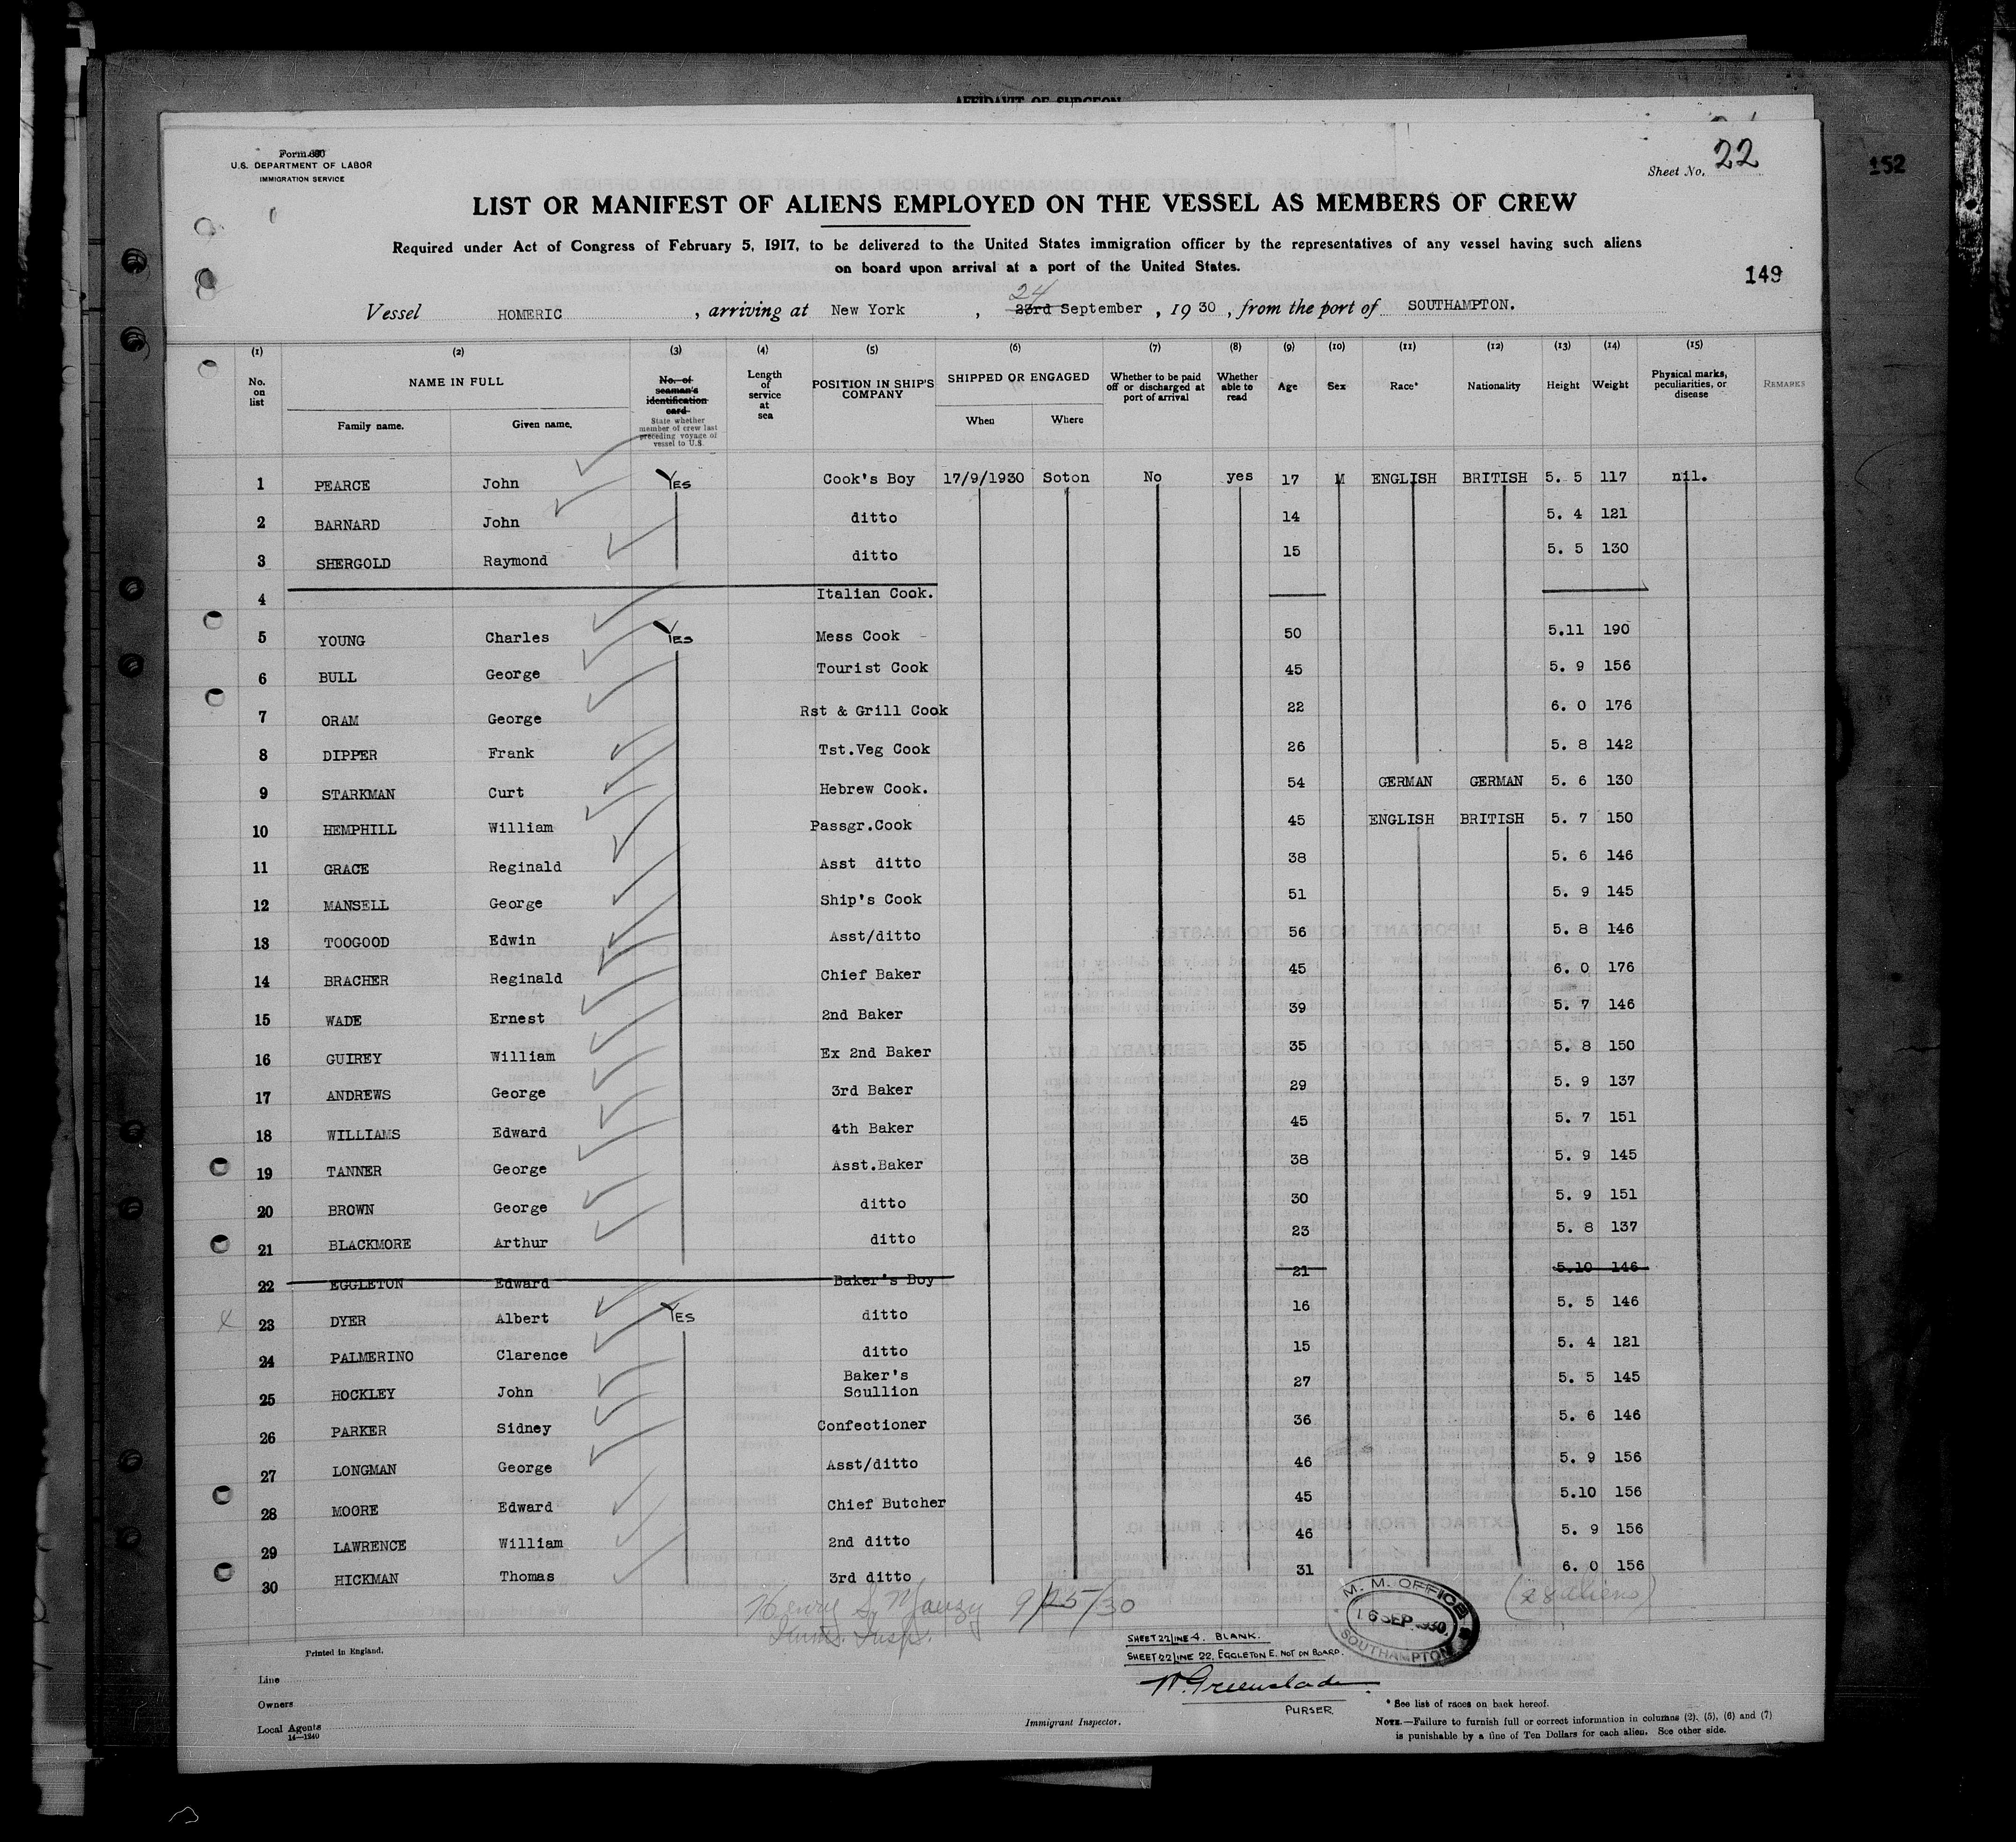 AFFIDAVIT OF SURGEON
Form 680
U.S. DEPARTMENT OF LABOR
IMMIGRATION SERVICE
Sheet No. 22
152
LIST OR MANIFEST OF ALIENS EMPLOYED ON THE VESSEL AS MEMBERS OF CREW
Required under Act of Congress of February 5, 1917, to be delivered to the United States immigration officer by the representatives of any vessel having such aliens
on board upon arrival at a port of the United States.
149
24
Vessel HOMERIC, arriving at New York, 23rd September, 1930, from the port of SOUTHAMPTON.
(1) (2) (3) (4) (5) (6) (7) (8) (9) (10) (11) (12) (13) (14) (15)
No. on list NAME IN FULL Family name. Given name. No. of seaman's identification card State whether member of crew last preceding voyage of vessel to U.S. Length of service at sea POSITION IN SHIP'S COMPANY SHIPPED OR ENGAGED When Where Whether to be paid off or discharged at port of arrival Whether able to read Age Sex Race* Nationality Height Weight Physical marks, peculiarities, or disease REMARKS
1 PEARCE John YES Cook's Boy 17/9/1930 Soton No yes 17 M ENGLISH BRITISH 5. 5 117 nil.
2 BARNARD John ditto 14 5. 4 121
3 SHERGOLD Raymond ditto 15 5. 5 130
4 Italian Cook.
5 YOUNG Charles YES Mess Cook 50 5.11 190
6 BULL George Tourist Cook 45 5. 9 156
7 ORAM George Rst & Grill Cook 22 6. 0 176
8 DIPPER Frank Tst.Veg Cook 26 5. 8 142
9 STARKMAN Curt Hebrew Cook. 54 GERMAN GERMAN 5. 6 130
10 HEMPHILL William Passgr.Cook 45 ENGLISH BRITISH 5. 7 150
11 GRACE Reginald Asst ditto 38 5. 6 146
12 MANSELL George Ship's Cook 51 5. 9 145
13 TOOGOOD Edwin Asst/ditto 56 5. 8 146
14 BRACHER Reginald Chief Baker 45 6. 0 176
15 WADE Ernest 2nd Baker 39 5. 7 146
16 GUIREY William Ex 2nd Baker 35 5. 8 150
17 ANDREWS George 3rd Baker 29 5. 9 137
18 WILLIAMS Edward 4th Baker 45 5. 7 151
19 TANNER George Asst.Baker 38 5. 9 145
20 BROWN George ditto 30 5. 9 151
21 BLACKMORE Arthur ditto 23 5. 8 137
22 EGGLETON Edward Baker's Boy 21 5.10 146
23 DYER Albert YES ditto 16 5. 5 146
24 PALMERINO Clarence ditto 15 5. 4 121
25 HOCKLEY John Baker's Scullion 27 5. 5 145
26 PARKER Sidney Confectioner 36 5. 6 146
27 LONGMAN George Asst/ditto 46 5. 9 156
28 MOORE Edward Chief Butcher 45 5.10 156
29 LAWRENCE William 2nd ditto 46 5. 9 156
30 HICKMAN Thomas 3rd ditto 31 6. 0 156
Henry S. 9/25/30
Imm. Insp.
(28 aliens)
M. M. OFFICE
16 SEP 1930
SOUTHAMPTON
SHEET 22 LINE 4. BLANK.
SHEET 22 LINE 22. EGGLETON E. NOT ON BOARD.
W. Greenslade
PURSER
Printed in England.
Line
Owners
Local Agents
14—1240
Immigrant Inspector.
* See list of races on back hereof.
NOTE.—Failure to furnish full or correct information in columns (2), (5), (6) and (7)
is punishable by a fine of Ten Dollars for each alien. See other side.